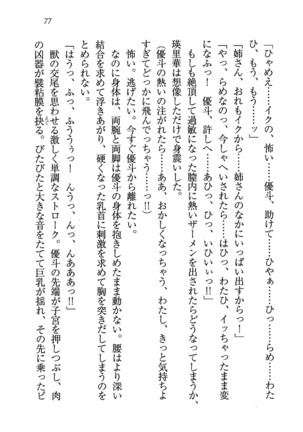 77
「ひゃめえ……イクの、怖い……優斗、助けて……ひやぁ……ひっ……らめ……わた
ひ、もう、もう……ーッ」
「姉さん、おれもイクから……姉さんのなかにいっぱい出すからっ！」
「やっ、らめなのっ、今、しゃへいされたら……はひっ、わたひ、イッちゃったまま変
になふっ！　優斗、許しへ……あひっ、ひっ、いひいぃっ!!」
瑛里華は想像しただけで身震いした。
絶頂をもう過ぎて過敏になった膣内に熱いザーメンを出されたら……おかしくなる。気持ちよ
すぎてどっかに飛んでっちゃう……っ!!）
（優斗の熱いの注がれたら……ああ、おかしくなっちゃう、わたし、きっと気持ちよ
怖い。逃げたい。今すぐ優斗から離れたい。
なのに身体は、両腕と両脚は優斗の身体を抱きしめたまま動かない。腰はより深い
結合を求めて浮きあがり、硬くなった乳首に刺激を求めて胸を突きだしてしまうのを
とめられない。
「はうっ、ふっ、ふううぅっ！　んうっ、んっ、んああああっ!!」
獣の交尾を思わせる激しく単調なストローク。優斗の先端が子宮を押しつぶし、肉
の凶器が襞粘膜を抉る。びたびたと大きな音をたてて巨乳が揺れ、その先に乗ったピ